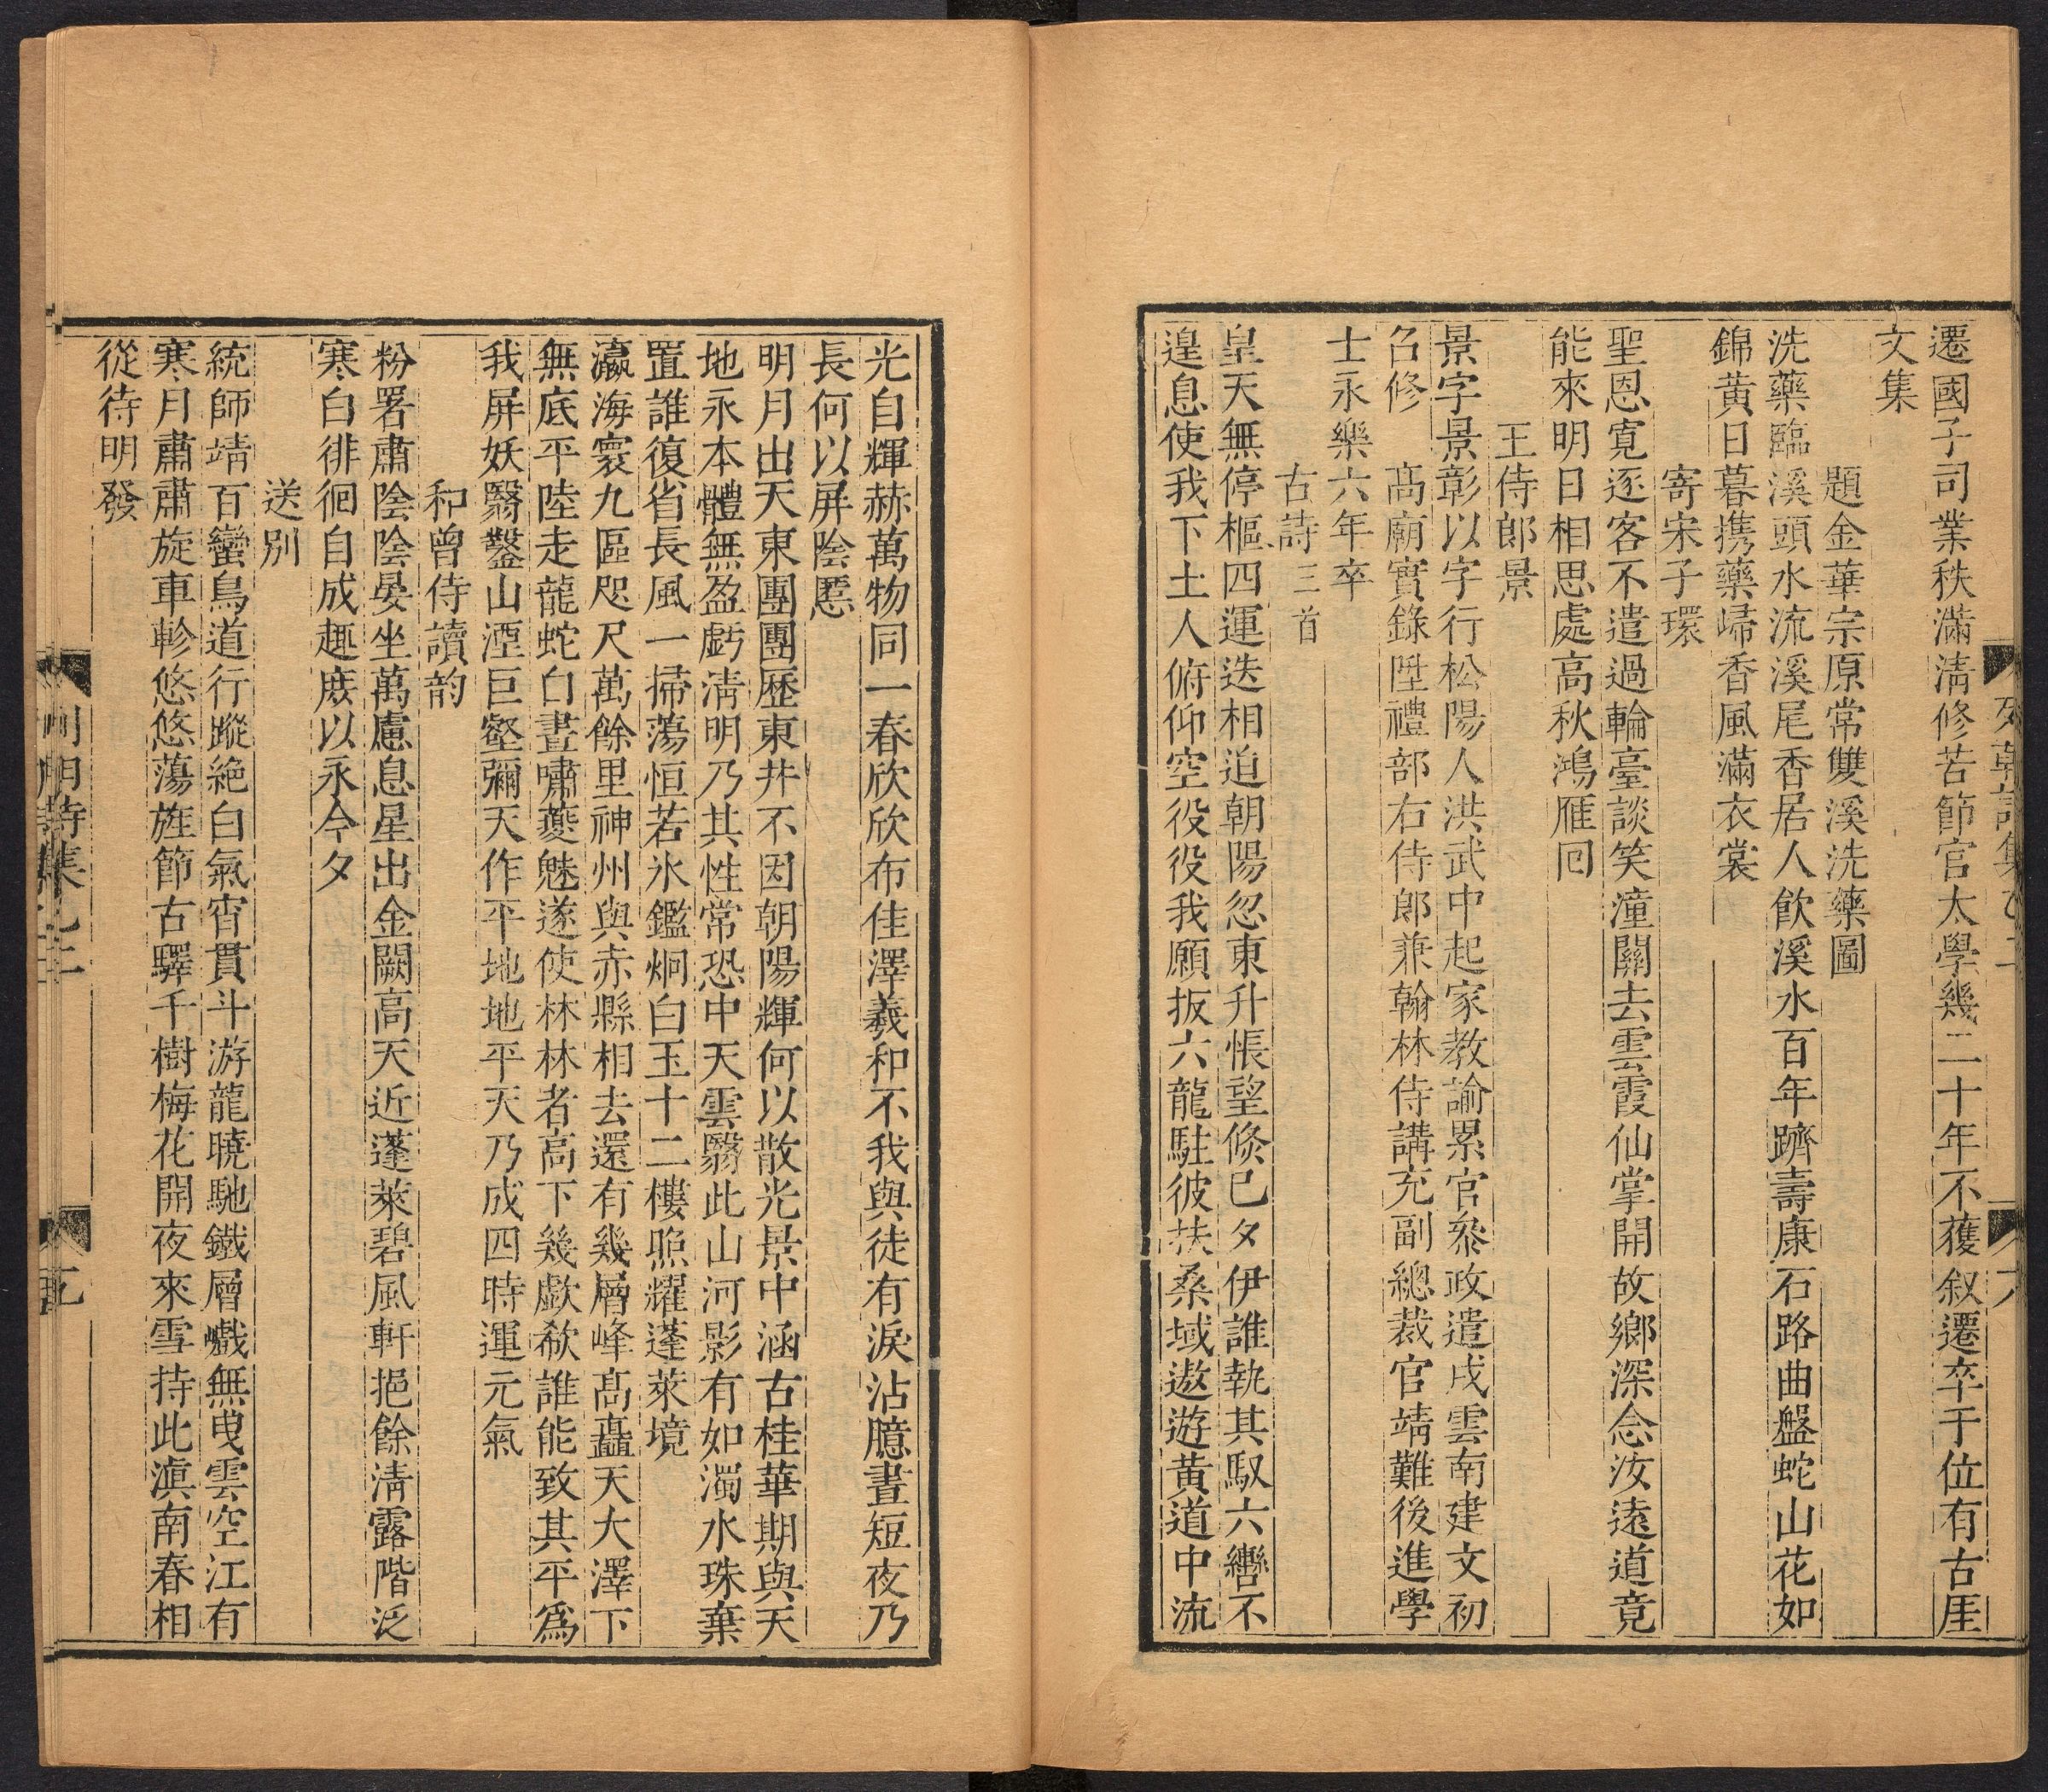 遷國子司業秩滿淸修苦節官太學幾二十年不獲叙遷卒于位有古厓
文集
題金華宗原常雙溪洗藥圖
洗藥臨溪頭水流溪尾香居人飮溪水百年躋壽康石路曲盤蛇山花如
錦黄日暮携藥歸香風滿衣裳
寄宋子環
聖恩寛逐客不遣過輪臺談笑潼關去雲霞仙掌開故鄉深念汝遠道竟
能來明日相思處高秋鴻雁囘
王侍郎景
景字景彰以字行松陽人洪武中起家教諭累官叅政遣戍雲南建文初
召修　高廟實錄陞禮部右侍郎兼翰林侍講充副總裁官靖難後進學
士永樂六年卒
古詩三首
皇天無停樞四運迭相迫朝陽忽東升悵望倏已夕伊誰執其馭六轡不
遑息使我下土人俯仰空役役我願扳六龍駐彼扶桑域遨遊黄道中流
光自輝赫萬物同一春欣欣布佳澤羲和不我與徒有淚沾臆晝短夜乃
長何以屏陰慝
明月出天東團團歷東井不因朝陽輝何以散光景中涵古桂華期與天
地永本體無盈虧淸明乃其性常恐中天雲翳此山河影有如濁水珠棄
置誰復省長風一掃蕩恒若氷鑑炯白玉十二樓照耀蓬萊境
瀛海寰九區咫尺萬餘里神州與赤縣相去還有幾層峰髙矗天大澤下
無底平陸走龍蛇白晝嘯夔魅遂使林林者高下幾歔欷誰能致其平爲
我屏妖翳鑿山湮巨壑彌天作平地地平天乃成四時運元氣
和曾侍讀韵
粉署肅陰陰晏坐萬慮息星出金闕高天近蓬萊碧風軒挹餘淸露階泛
寒白徘徊自成趣庶以永今夕
送别
統師靖百蠻鳥道行蹤絶白氣宵貫斗游龍曉馳鐵層巘無曳雲空江有
寒月肅肅旋車軫悠悠蕩旌節古驛千樹梅花開夜來雪持此滇南春相
從待明發